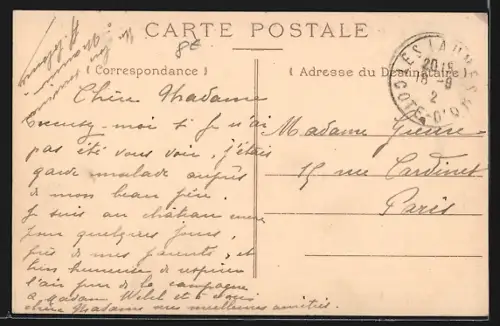 CARTE POSTALE
8€
( Correspondance )
( Adresse du Destinataire )
LAUMES
COTE-D'OR
20 15
18 -9
2
Chère Madame
Excusez-moi si je n'ai
pas été vous voir, j'étais
garde malade auprès
de mon beau père.
Je suis au château encore
pour quelques jours,
près de mes parents, et
bien heureuse de respirer
l'air pur de la campagne
à Madame et à vous
chère Madame mes meilleures amitiés.
Madame
15 rue Cardinet
Paris